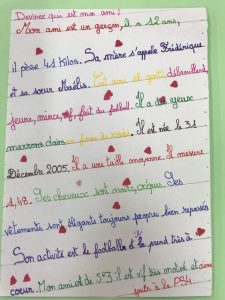 Devinez qui est mon ami!
Mon ami est un garçon, il a 12 ans,
il pèse 41 kilos. Sa mère s'appelle Frédérique
et sa sœur Maëlis. Cet ami est gentil, débrouillard,
jeune, mince, il fait du football. Il a des yeux
marrons dans forme de ronds. Il est né le 31
Décembre 2005. Il a une taille moyenne. Il mesure
1,48. Ses cheveux sont noirs, crépus. Ses
vêtements sont élégants toujours propres bien repassés
Son activité est le football et le prend très à
coeur. Mon ami est de 5°3 il est vif très motivé et aime
jouer à la PS4.